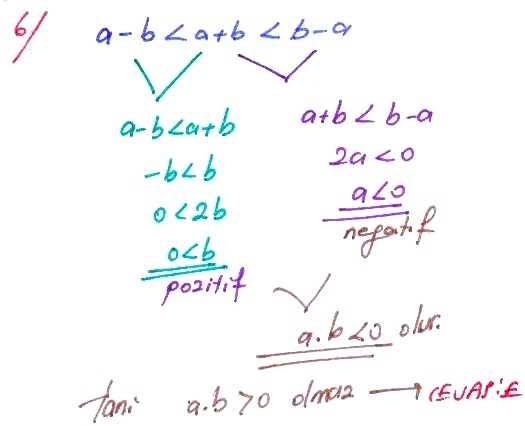 6/ a-b<a+b<b-a
a-b<a+b
-b<b
0<2b
0<b
pozitif
a+b<b-a
2a<0
a<0
negatif
a.b<0 olur.
Yani a.b>0 olmaz → CEVAP:E